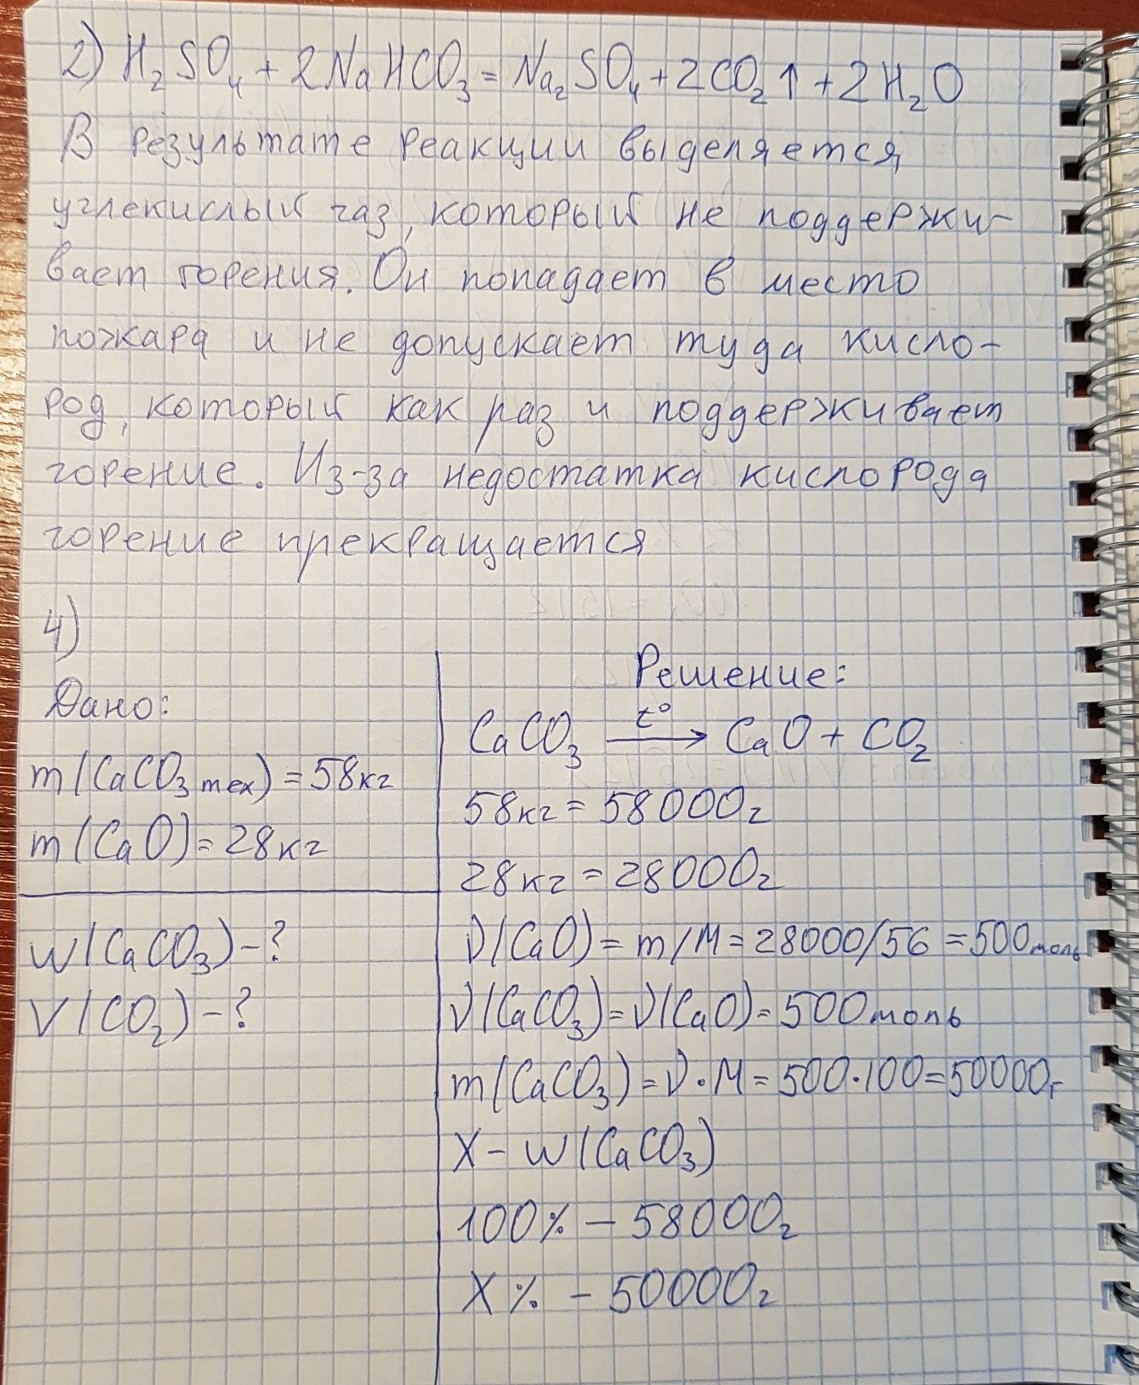 2) H₂SO₄ + 2NaHCO₃ = Na₂SO₄ + 2CO₂↑ + 2H₂O
В результате реакции выделяется
углекислый газ, который не поддержи-
вает горения. Он попадает в место
пожара и не допускает туда кисло-
род, который как раз и поддерживает
горение. Из-за недостатка кислорода
горение прекращается
4)
Дано:
m(CaCO₃ тех) = 58кг
m(CaO) = 28кг
W(CaCO₃) - ?
V(CO₂) - ?
Решение:
CaCO₃ —t°→ CaO + CO₂
58кг = 58000г
28кг = 28000г
ν(CaO) = m/M = 28000/56 = 500моль
ν(CaCO₃) = ν(CaO) = 500моль
m(CaCO₃) = ν · M = 500 · 100 = 50000г
X - W(CaCO₃)
100% - 58000г
X% - 50000г